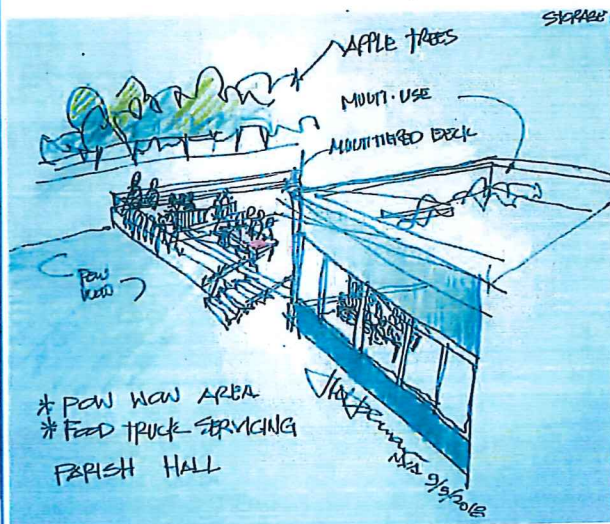 STORAGE
APPLE TREES
MULTI-USE
MULTITIERED DECK
POW
WOW
* POW WOW AREA
* FOOD TRUCK SERVICING
PARISH HALL
9/9/2018